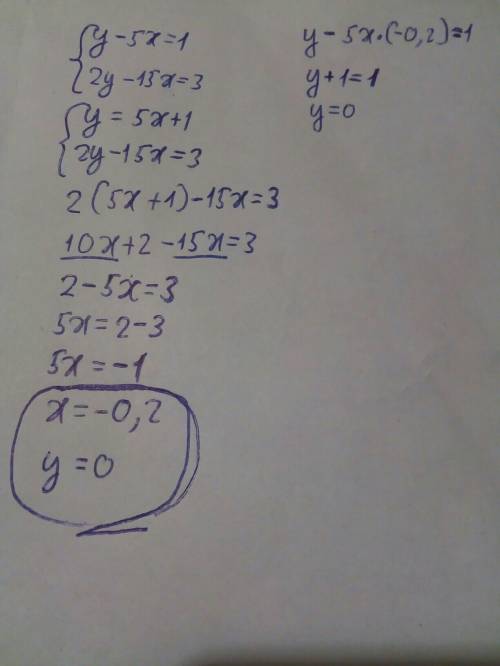 {y-5x=1
2y-15x=3
{y=5x+1
2y-15x=3
2(5x+1)-15x=3
10x+2-15x=3
2-5x=3
5x=2-3
5x=-1
x=-0,2
y=0
y-5x·(-0,2)=1
y+1=1
y=0